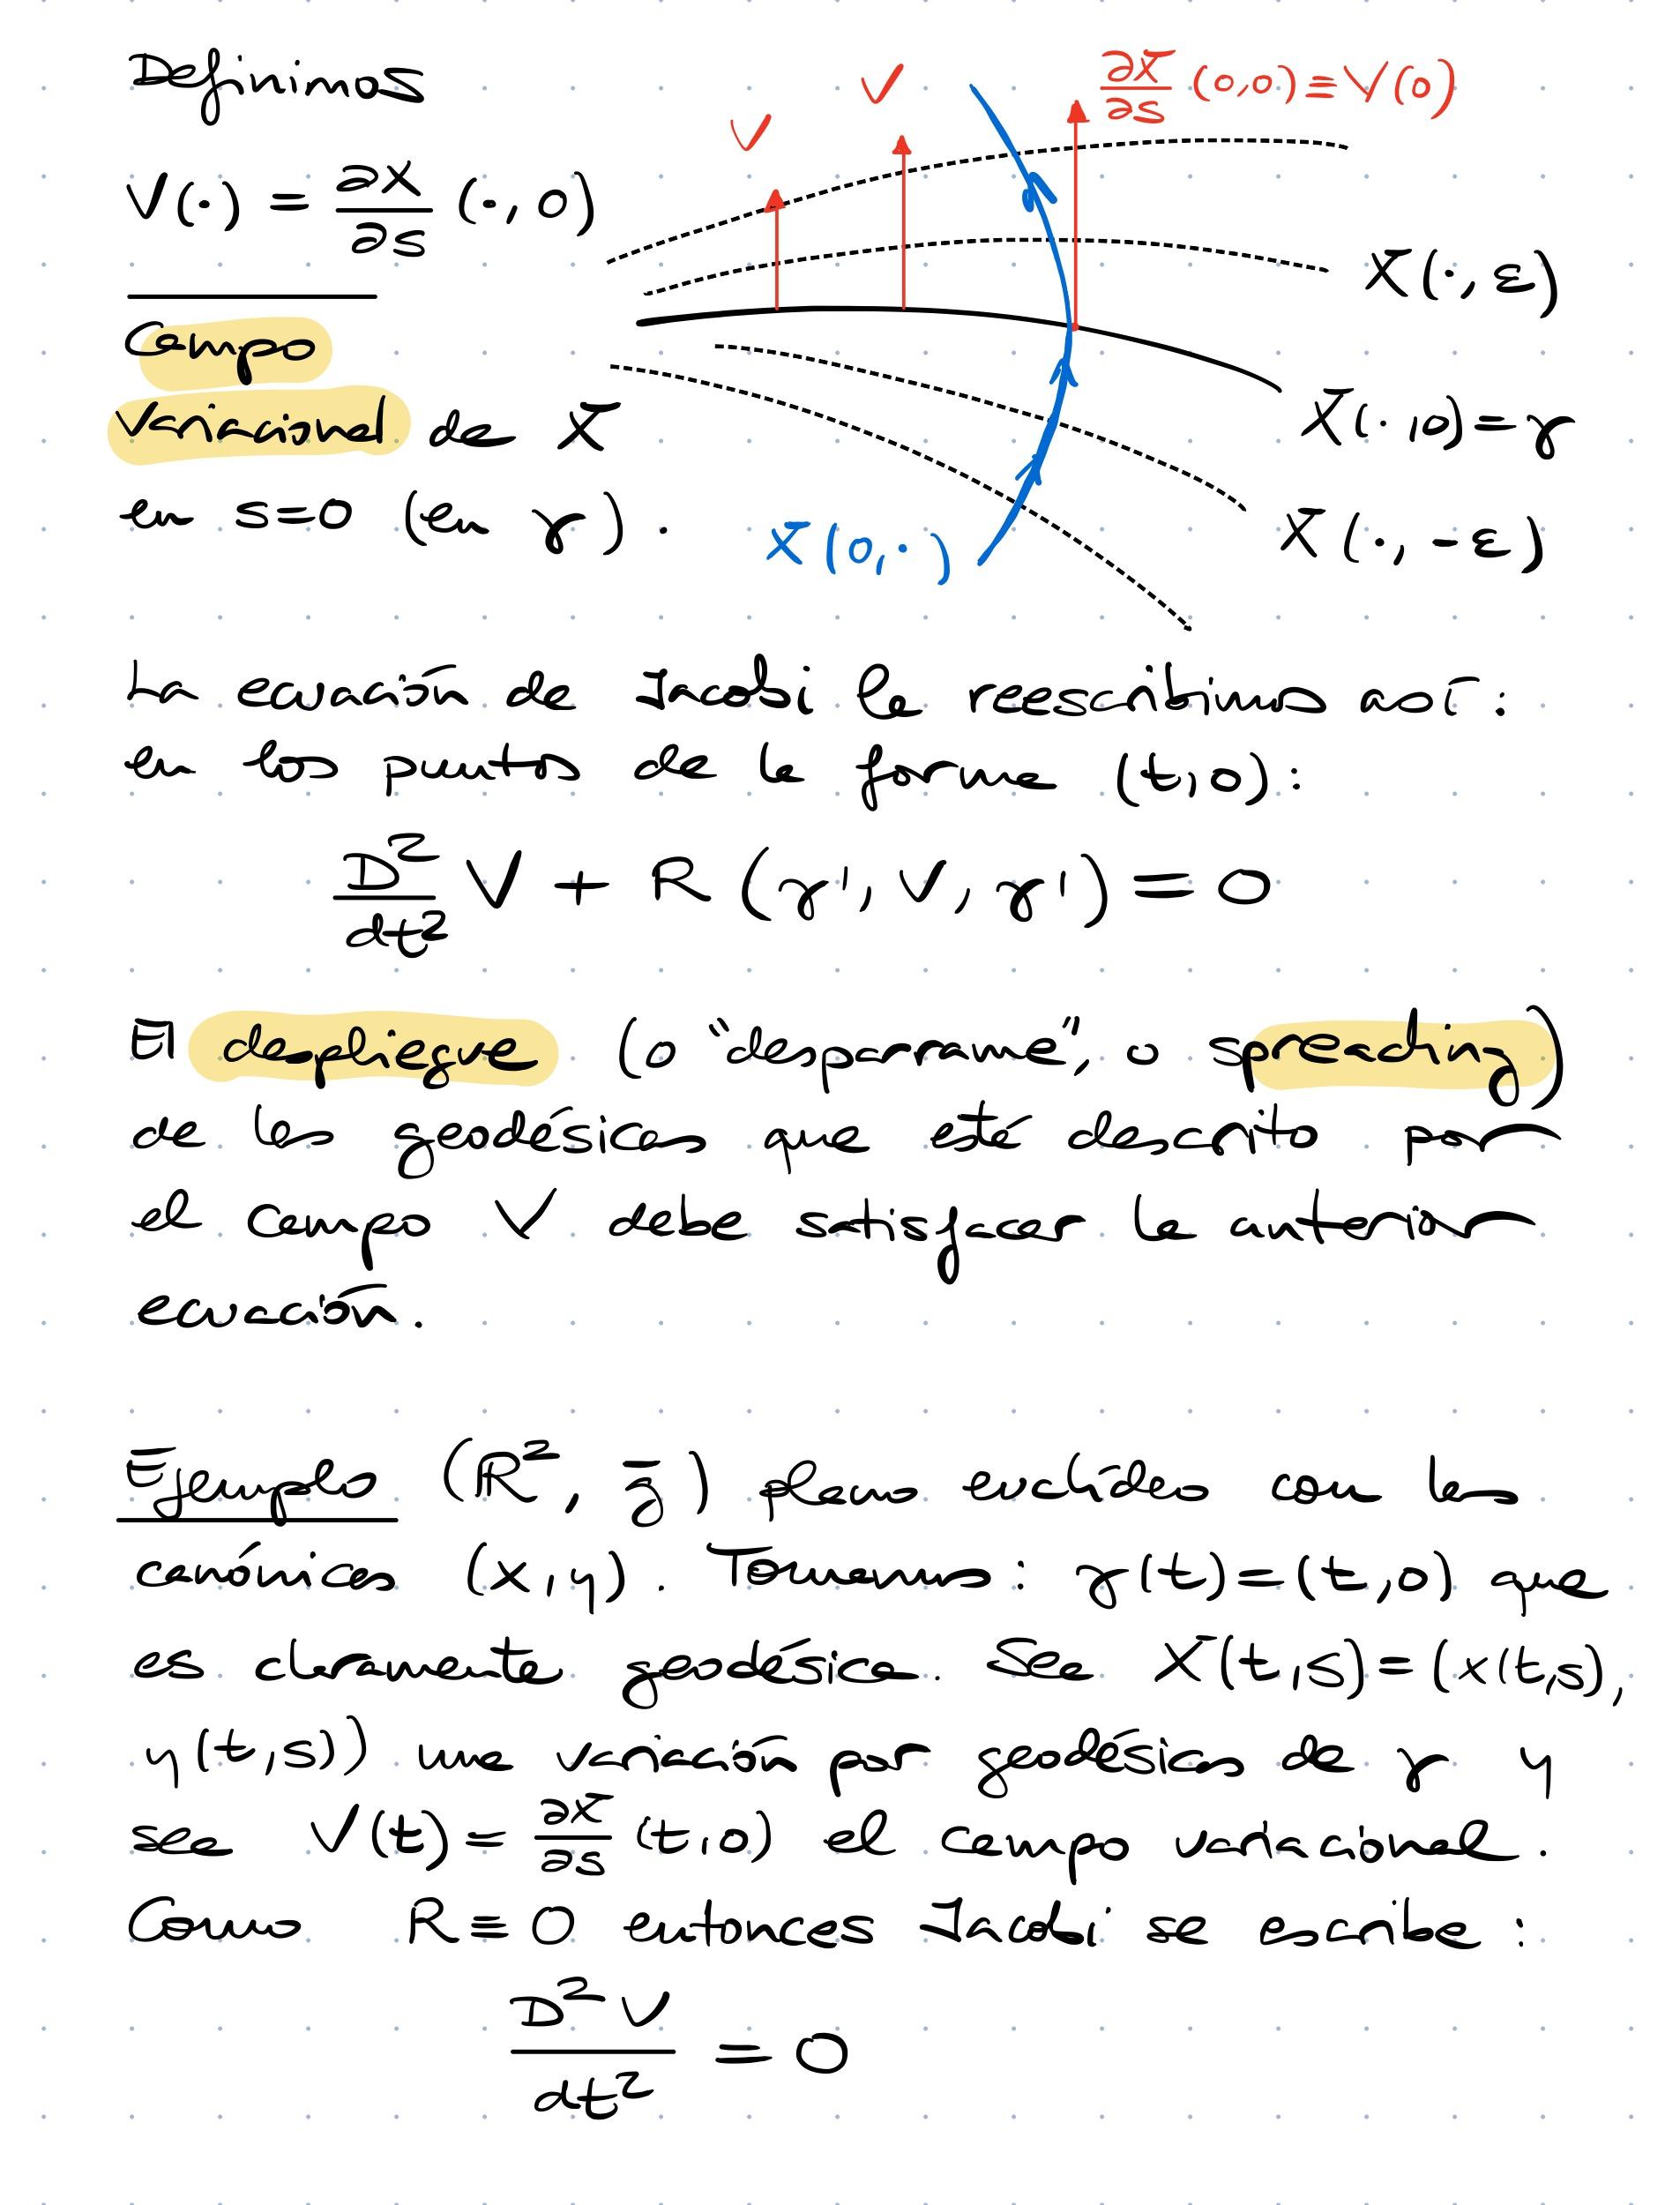 Definimos
V(·) = ∂X/∂s (·, 0)
Campo
variacional de X
en s=0 (en γ).
V
V
∂X/∂s (0,0) ≡ V(0)
X(·, ε)
X(·,0)=γ
X(·, -ε)
X(0,·)
La ecuación de Jacobi la reescribimos así:
en los puntos de la forma (t,0):
D²/dt² V + R(γ', V, γ') = 0
El despliegue (o "desparrame", o spreading)
de las geodésicas que está descrito por
el campo V debe satisfacer la anterior
ecuación.
Ejemplo (ℝ², g̅) plano euclídeo con las
canónicas (x,y). Tomamos: γ(t)=(t,0) que
es claramente geodésica. Sea X(t,s)=(x(t,s),
y(t,s)) una variación por geodésicas de γ y
sea V(t) = ∂X/∂s (t,0) el campo variacional.
Como R≡0 entonces Jacobi se escribe:
D²V/dt² = 0